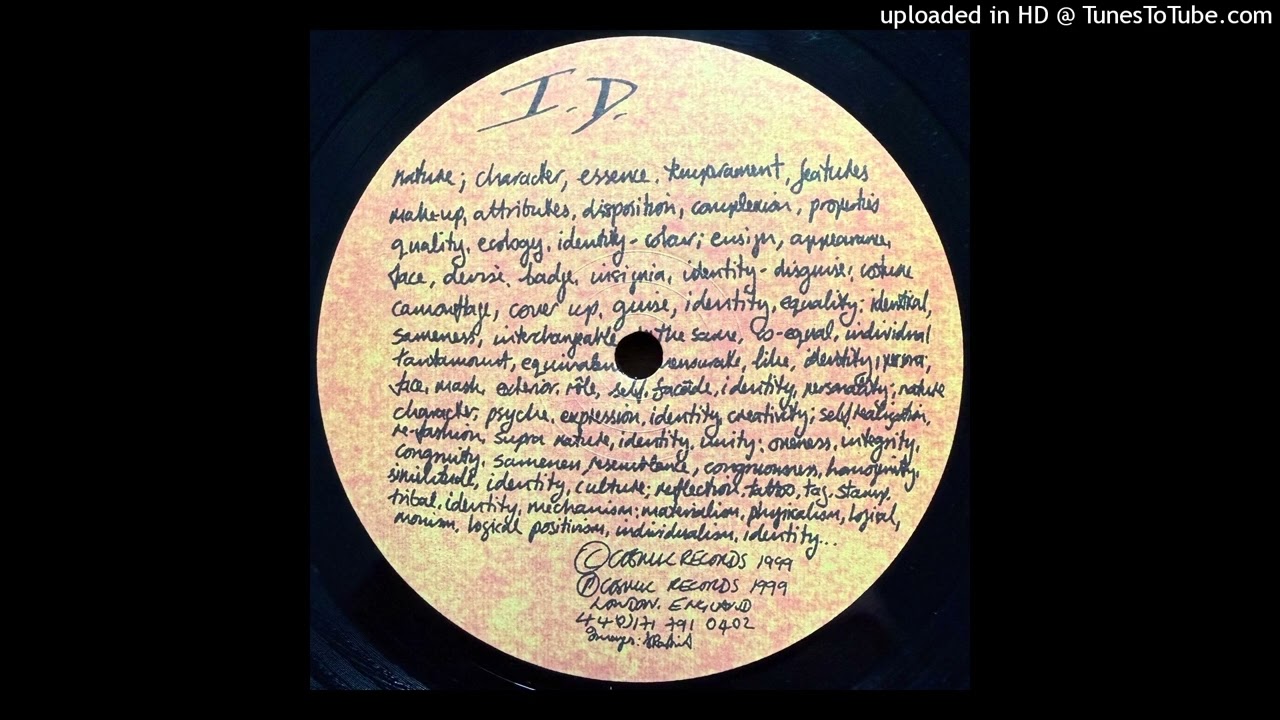 uploaded in HD @ TunesToTube.com
I.D.
nature; character, essence. temperament, features
make-up, attributes, disposition, complexion, properties
quality, ecology, identity - colour; ensign, appearance,
face, devise, badge, insignia, identity - disguise; costume
camouflage, cover up, guise, identity, equality: identical,
sameness, interchangeable the same, co-equal, individual
tantamount, like, identity,
face, mask, exterior, rôle, self, facade, identity, personality; nature
character, psyche, expression, identity, creativity; self realization,
re-fashion, supra nature, identity, unity: oneness, integrity,
congruity, sameness, resemblance, congruousness, homogenity,
similitude, identity, culture; reflection, tattoo, tag, stamp,
tribal, identity, mechanism: materialism, physicalism, logical,
monism, logical positivism, individualism, identity...
© COSMIC RECORDS 1999
Ⓟ COSMIC RECORDS 1999
LONDON. ENGLAND
44(0)171 791 0402